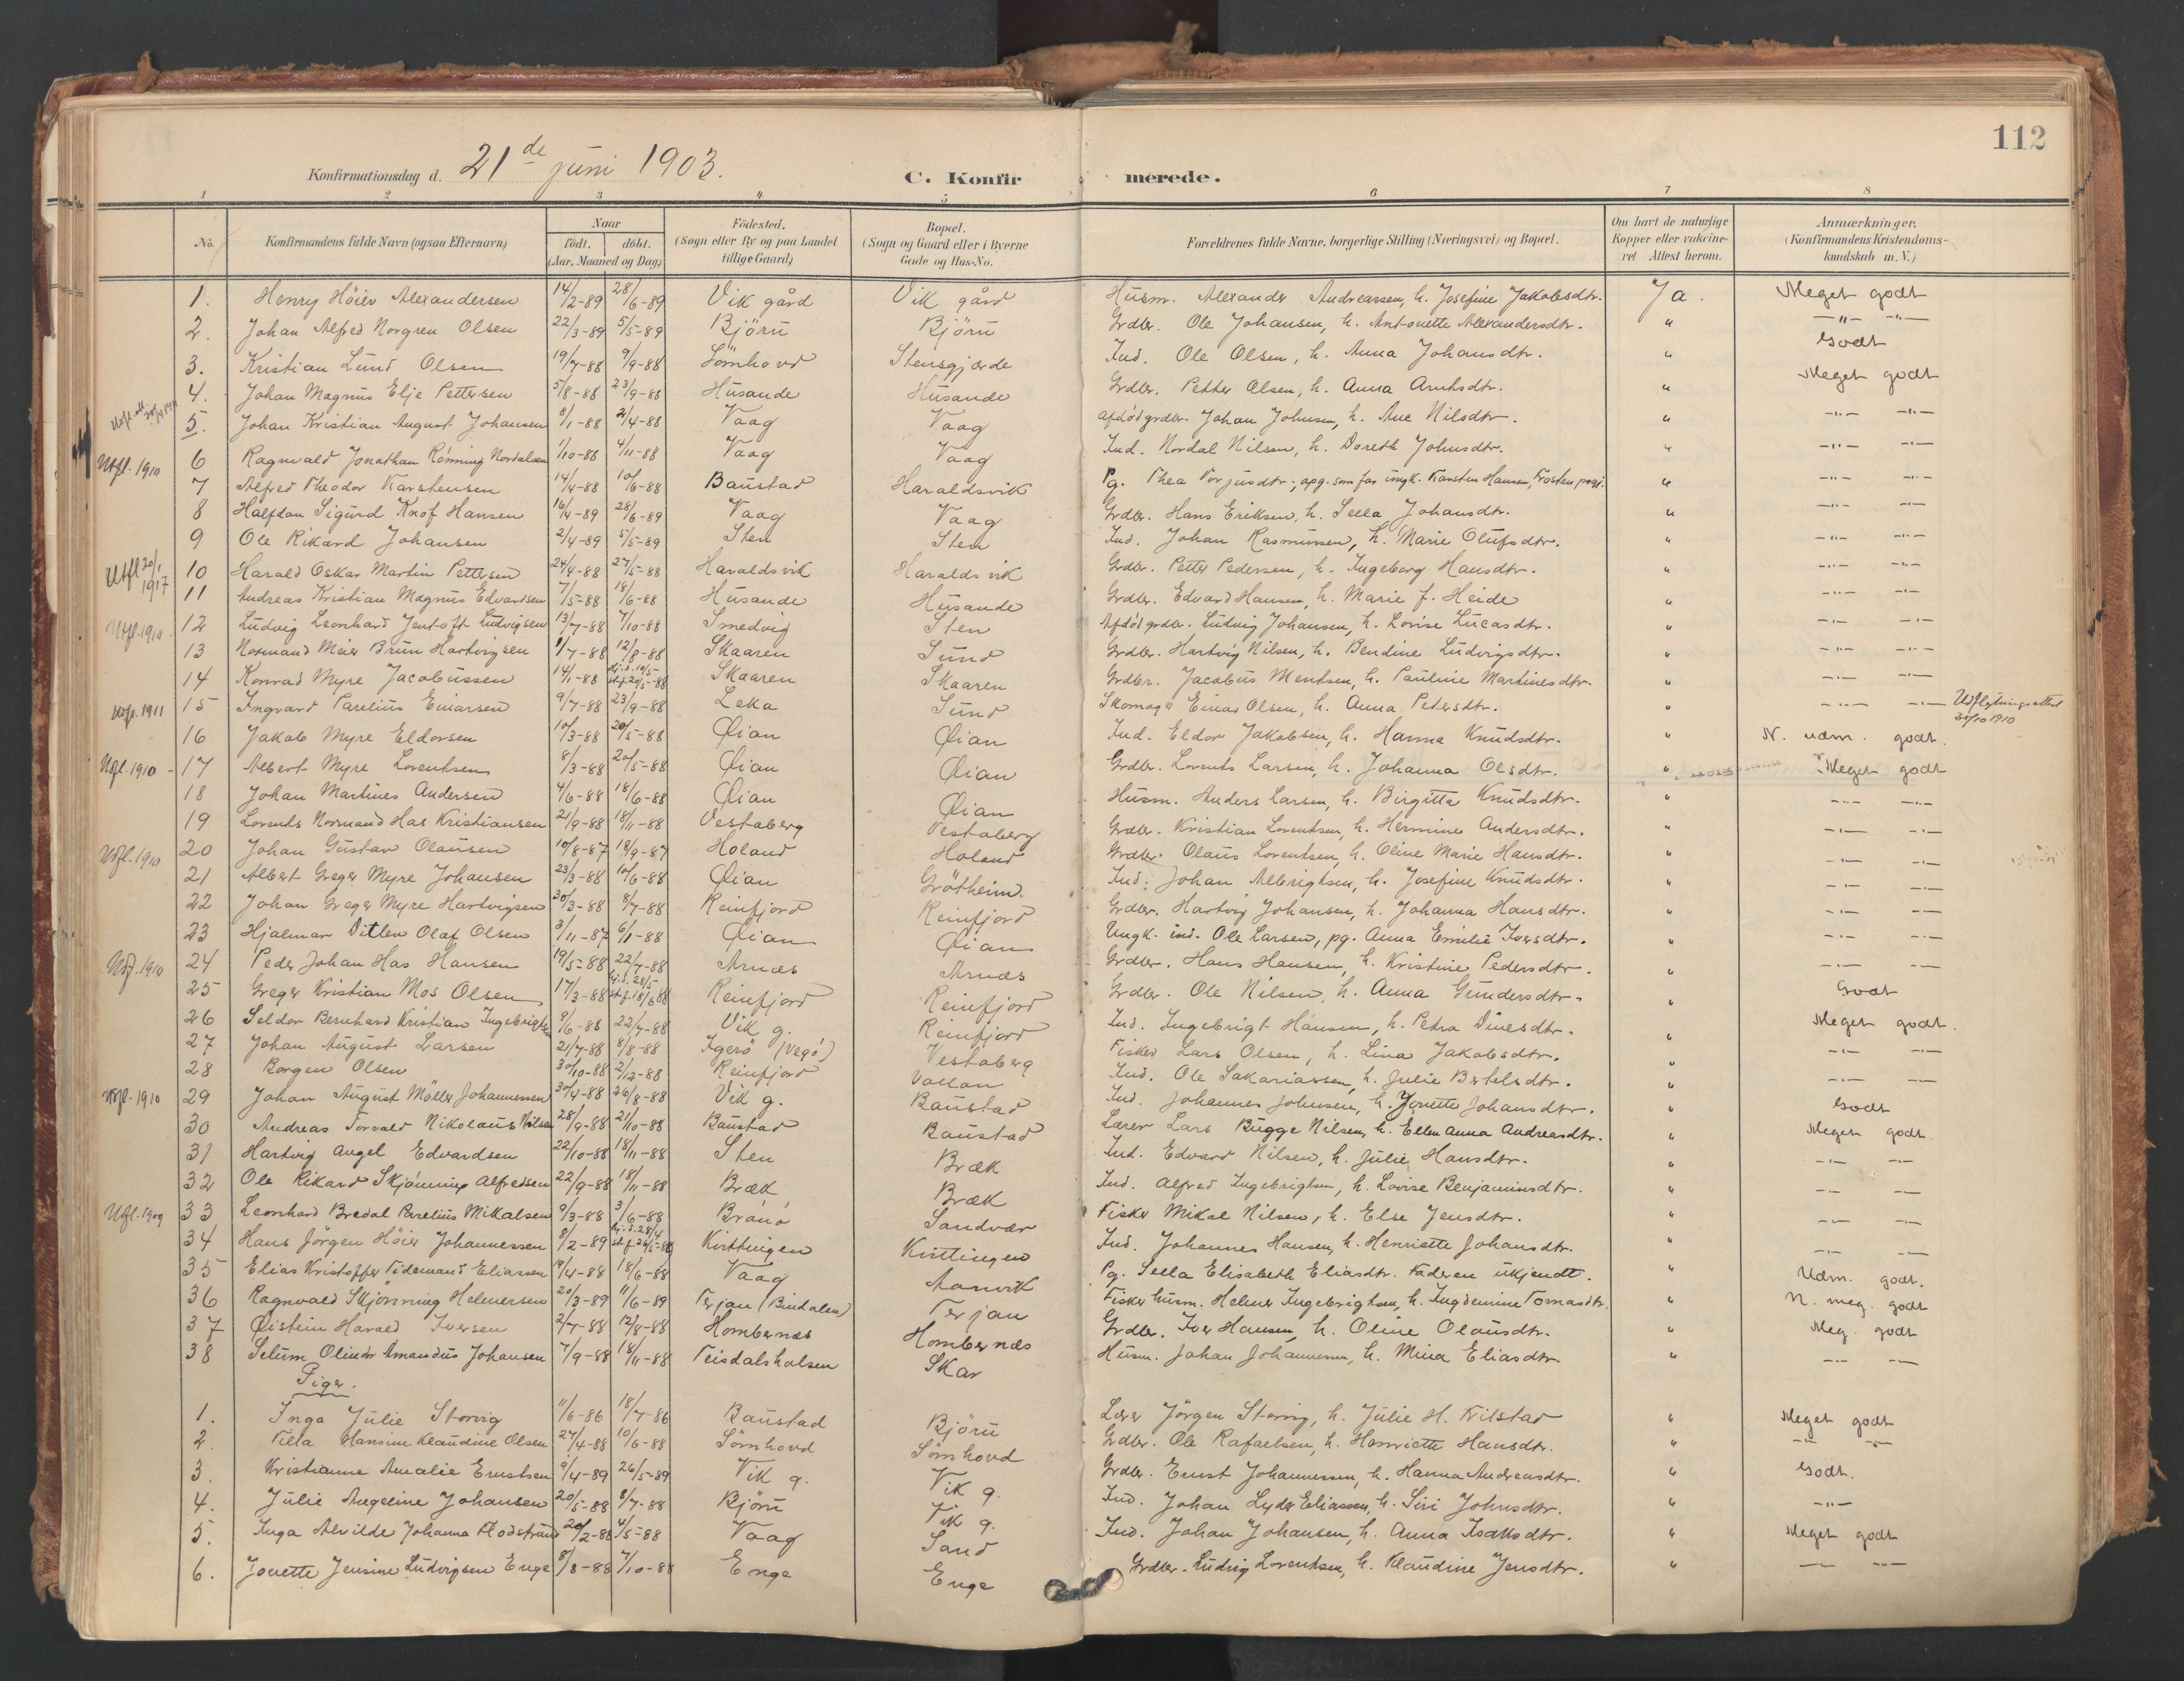 112
Konfirmationsdag d. 21de juni 1903. C. Konfirmerede.
1 2 3 4 5 6 7 8
No. Konfirmandens fulde Navn (ogsaa Efternavn) Naar födt. döbt. (Aar, Maaned og Dag) Födested. (Sogn eller By og paa Landet tillige Gaard) Bopæl. (Sogn og Gaard eller i Byerne Gade og Hus-No. Forældrenes fulde Navne, borgerlige Stilling (Næringsvei) og Bopæl. Om havt de naturlige Kopper eller vakcineret Attest herom. Anmærkninger. (Konfirmandens Kristendomskundskab m. V.)
1. Henry Höier Alexandersen 14/2-89 28/6-89 Vik gård Vik gård Husm. Alexander Andreassen, h. Josefine Jakobsdtr. Ja. Meget godt
2. Johan Alfred Norgren Olsen 22/3-89 5/5-89 Björü Björü Grdbr. Ole Johansen, h. Antonette Alexandersdtr. " -"- -"-
3. Kristian Lund Olsen 19/7-88 9/9-88 Sömhovd Stensgjærde Ind. Ole Olsen, h. Anna Johansdtr. " Godt
4. Johan Magnus Elje Pettersen 5/8-88 23/9-88 Husande Husande Grdbr. Petter Olsen, h. Anna Arntsdtr. " Meget godt
5. Johan Kristian August Johansen 8/1-88 2/4-88 Vaag Vaag Afdöd grdbr. Johan Johnsen, h. Ane Nilsdtr. " -"- -"-
Utfl. 1910 6 Ragnvald Jonathan Rönning Nordalsen 1/10-88 4/11-88 Vaag Vaag Ind. Nordal Nilsen, h. Doreth Johnsdtr. " -"- -"-
7 Alfred Theodor Karstensen 14/4-88 10/6-88 Baustad Haraldsvik Pg. Thea Torjusdtr., opg. som far ungk. Karsten Hansen, Frosten prgj. " -"- -"-
8 Halfdan Sigurd Knof Hansen 16/4-89 28/6-89 Vaag Vaag Grdbr. Hans Eriksen, h. Sella Johansdtr. " -"- -"-
9 Ole Rikard Johansen 2/4-89 5/5-89 Sten Sten Ind. Johan Rasmussen, h. Marie Olufsdtr. " -"- -"-
Utfl 20/1 1917 10 Harald Oskar Martin Pettersen 24/4-88 27/5-88 Haraldsvik Haraldsvik Grdbr. Petter Pedersen, h. Ingeborg Hansdtr. " -"- -"-
11 Andreas Kristian Magnus Edvardsen 7/5-88 18/6-88 Husande Husande Grdbr. Edvard Hansen, h. Marie f. Heide " -"- -"-
Utfl. 1910. 12 Ludvig Leonhard Jentoft Ludvigsen 13/7-88 7/10-88 Smedvig Sten Afdöd grdbr. Ludvig Johansen, h. Lovise Lucasdtr. " -"- -"-
13 Normand Meier Brun Hartvigsen 1/7-88 12/8-88 Skaaren Sund Grdbr. Hartvig Nilsen, h. Bendine Ludvigsdtr. " -"- -"-
14 Konrad Myre Jacobussen 14/1-88 Hj.d. 10/5- st.f. 20/5-88 Skaaren Skaaren Grdbr. Jacobus Mentsen, h. Pauline Martinesdtr. " -"- -"-
Utfl. 1911 15 Ingvard Parelius Einarsen 9/7-88 23/9-88 Leka Sund Skomager Einar Olsen, h. Anna Petersdtr. " -"- -"- Udflytningsattest 31/10 1910
16 Jakob Myre Eldorsen 10/3-88 20/5-88 Øian Øian Ind. Eldor Jakobsen, h. Hanna Knudsdtr. " N. udm. godt.
Utfl. 1910 - 17 Albert Myre Lorentsen 8/3-88 20/5-88 Øian Øian Grdbr. Lorents Larsen, h. Johanna Olsdtr. " Meget godt
18 Johan Martines Andersen 4/6-88 18/6-88 Øian Øian Husm. Anders Larsen, h. Birgitta Knudsdtr. " -"- -"-
19 Lorents Normand Has Kristiansen 21/9-88 18/11-88 Vestaberg Vestaberg Grdbr. Kristian Lorentsen, h. Hermine Andersdtr. " -"- -"-
Utfl. 1910 20 Johan Gustav Olausen 10/8-87 18/9-87 Holand Holand Grdbr. Olaus Lorentsen, h. Oline Marie Hansdtr. " -"- -"-
21 Albert Greger Myre Johansen 23/3-88 10/6-88 Øian Grötheim Ind. Johan Albrigtsen, h. Josefine Knudsdtr. " -"- -"-
22 Johan Greger Myre Hartvigsen 30/3-88 8/7-88 Reinfjord Reinfjord Grdbr. Hartvig Johansen, h. Johanna Hansdtr. " -"- -"-
23 Hjalmar Ditlev Olaf Olsen 3/11-87 6/1-88 Øian Øian Ungk. ind. Ole Larsen, pg. Anna Emilie Iversdtr. " -"- -"-
Utfl. 1910 24 Peder Johan Has Hansen 19/5-88 22/7-88 Arnæs Arnæs Grdbr. Hans Hansen, h. Kristine Pedersdtr. " -"- -"-
25 Greger Kristian Mos Olsen 17/3-88 hj.d. 28/5- st.f. 18/6 88 Reinfjord Reinfjord Grdbr. Ole Nilsen, h. Anna Gundersdtr. " Godt
26 Seldor Bernhard Kristian Ingebrigtsen 9/6-88 22/7-88 Vik g. Reinfjord Ind. Ingebrigt Hansen, h. Petra Dinesdtr. " Meget godt.
27 Johan August Larsen 21/7-88 8/8-88 Igerö (Vegö) Vestaberg Fisker Lars Olsen, h. Lina Jakobsdtr. " -"- -"-
28 Borgen Olsen 30/10-88 2/12-88 Reinfjord Vollan Ind. Ole Sakariassen, h. Julie Bertelsdtr. " -"- -"-
Utfl. 1910 29 Johan August Möller Johannessen 30/4-88 26/8-88 Vik g. Baustad Ind. Johannes Johnsen, h. Jonette Johansdtr. " Godt
30 Andreas Torvald Nikolaus Nilsen 28/9-88 21/10-88 Baustad Baustad Lærer Lars Bugge Nilsen, h. Ellen Anna Andreasdtr. " Meget godt.
31 Hartvig Angel Edvardsen 22/10-88 18/11-88 Sten Bræk Ind. Edvard Nilsen, h. Julie Hansdtr. " -"- -"-
32 Ole Rikard Skjönning Alfredsen 22/9-88 18/11-88 Bræk Bræk Ind. Alfred Ingebrigtsen, h. Lovise Benjaminsdtr. " -"- -"-
Utfl. 1909 33 Leonhard Bredal Parelius Mikalsen 9/3-88 3/6-88 Brönö Sandvær Fisker Mikal Nilsen, h. Else Jensdtr. " -"- -"-
34 Hans Jörgen Höier Johannessen 8/2-89 hj.d. 28/4 st.f. 26/5-89 Kvittingen Kvittingen Ind. Johannes Hansen, h. Henriette Johansdtr. " -"- -"-
35 Elias Kristoffer Tidemand Eliassen 19/4-88 18/6-88 Vaag Aanvik Pg. Sella Elisabeth Eliasdtr. Faderen ukjendt. " Udm. godt.
36 Ragnvald Skjönning Helmersen 20/3-89 11/6-89 Terjan (Bindalen) Terjan Fisker husm. Helmer Ingebrigtsen, h. Ingdemine Tomasdtr. " N. meg. godt
37 Øistein Harald Iversen 2/7-88 12/8-88 Hombernæs Hombernæs Grdbr. Iver Hansen, h. Oline Olausdtr. " Meg. godt
38 Selum Olinder Amandus Johansen 7/9-88 18/11-88 Teisdalshalsen Skar Husm. Johan Johannessen, h. Mina Eliasdtr. " -"- -"-
Piger.
1. Inga Julie Storvig 11/6-86 18/7-86 Baustad Björü Lærer Jörgen Storvig, h. Julie H. Kilstad " Meget godt
2. Hansine Klaudine Olsen 27/4-88 10/6-88 Sömhovd Sömhovd Grdbr. Ole Rafaelsen, h. Henriette Hansdtr. " -"- -"-
3. Kristianne Amalie Ernstsen 9/4-89 26/5-89 Vik g. Vik g. Grdbr. Ernst Johannessen, h. Hanna Andreasdtr. " Godt.
4. Julie Angeline Johansen 20/5-88 8/7-88 Björü Vik g. Ind. Johan Lyder Eliassen, h. Siri Johnsdtr. " -"-
5. Inga Alvilde Johanna Flodstrand 20/2-88 4/5-88 Vaag Sand Ind. Johan Johansen, h. Anna Isaksdtr. " Meget godt
6. Jonette Jensine Ludvigsen Enge 8/8-88 7/10-88 Enge Enge Grdbr. Ludvig Lorentsen, h. Klaudine Jensdtr. " -"- -"-